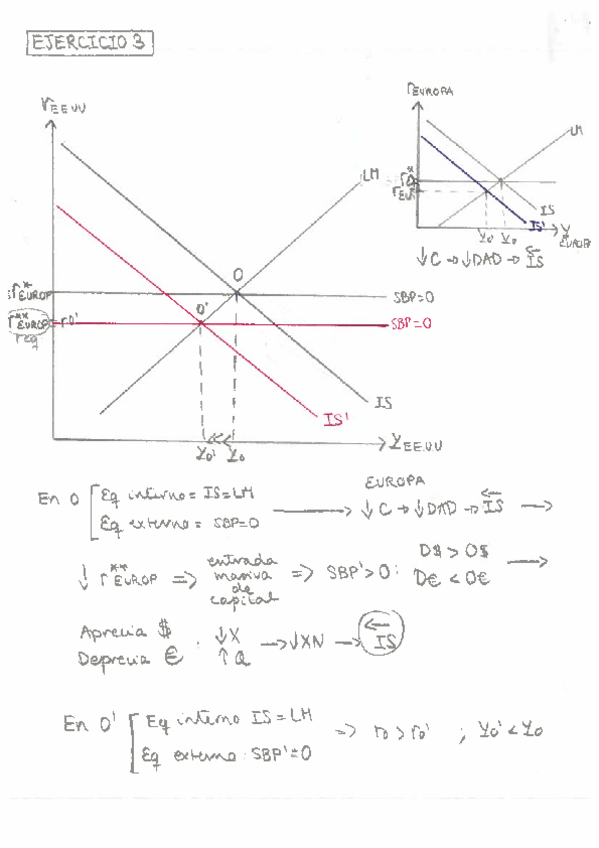 EJERCICIO 3
r EEUU
LM
O
O'
r* EUROP
SBP=0
r** EUROP
r0'
req
SBP=0
IS
IS'
Y0' Y0
Y EEUU
r EUROPA
LM
IS
IS'
Y0' Y0
Y EUROPA
↓C → ↓DAD → IS
En O
Eq interno = IS=LM
Eq externo = SBP=0
EUROPA
↓C → ↓DAD → IS →
↓ r** EUROP => entrada masiva de capital => SBP'>0 : D$ > O$
D€ < O€ →
Aprecia $ : ↓X → ↓XN → IS
Deprecia € ↑Q
En O'
Eq interno IS=LM
Eq externo SBP'=0
=> r0 > r0' ; Y0' < Y0